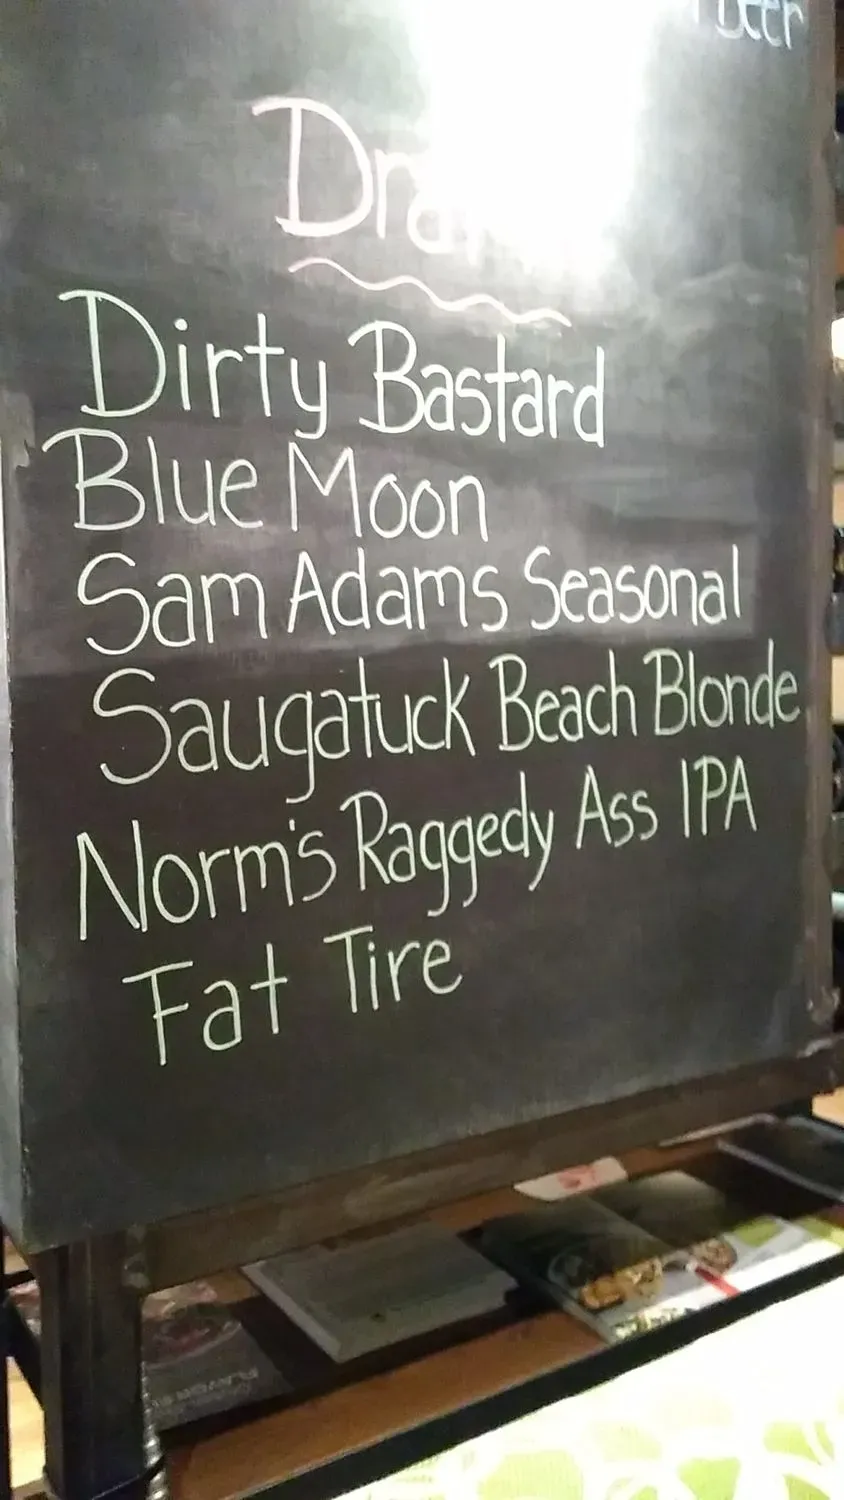 Beer
Dirty Bastard
Blue Moon
Sam Adams Seasonal
Saugatuck Beach Blonde
Norm's Raggedy Ass IPA
Fat Tire